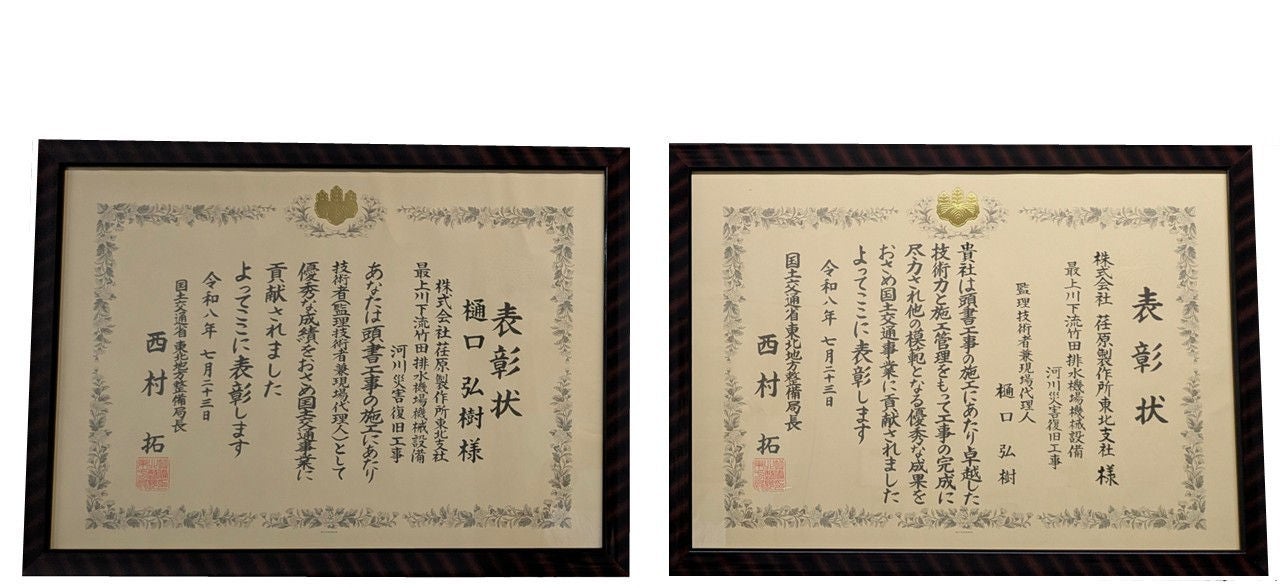 表彰状
株式会社荏原製作所東北支社
樋口弘樹様
最上川下流竹田排水機場機械設備
河川災害復旧工事
あなたは頭書工事の施工にあたり
技術者(監理技術者兼現場代理人)として
優秀な成績をおさめ国土交通事業に
貢献されました
よってここに表彰します
令和八年 七月二十三日
国土交通省 東北地方整備局長
西村 拓
表彰状
株式会社 荏原製作所東北支社 様
最上川下流竹田排水機場機械設備
河川災害復旧工事
監理技術者兼現場代理人
樋口 弘樹
貴社は頭書工事の施工にあたり卓越した
技術力と施工管理をもって工事の完成に
尽力され他の模範となる優秀な成果を
おさめ国土交通事業に貢献されました
よってここに表彰します
令和八年 七月二十三日
国土交通省 東北地方整備局長
西村 拓